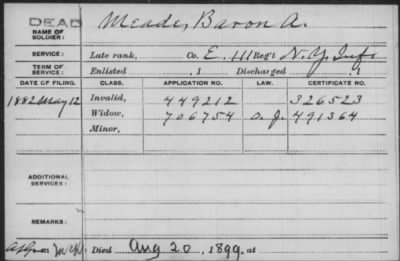 DEAD
NAME OF SOLDIER: Meade, Baron A.
SERVICE: Late rank, Co. E, 111 Reg't N.Y. Inf.
TERM OF SERVICE: Enlisted , 1 Discharged , 1
DATE OF FILING. CLASS. APPLICATION NO. LAW. CERTIFICATE NO.
1882 May 12 Invalid, 449212 326523
Widow, 706754 O.J. 491364
Minor,
ADDITIONAL SERVICES:
REMARKS:
Died Aug 20, 1899. at